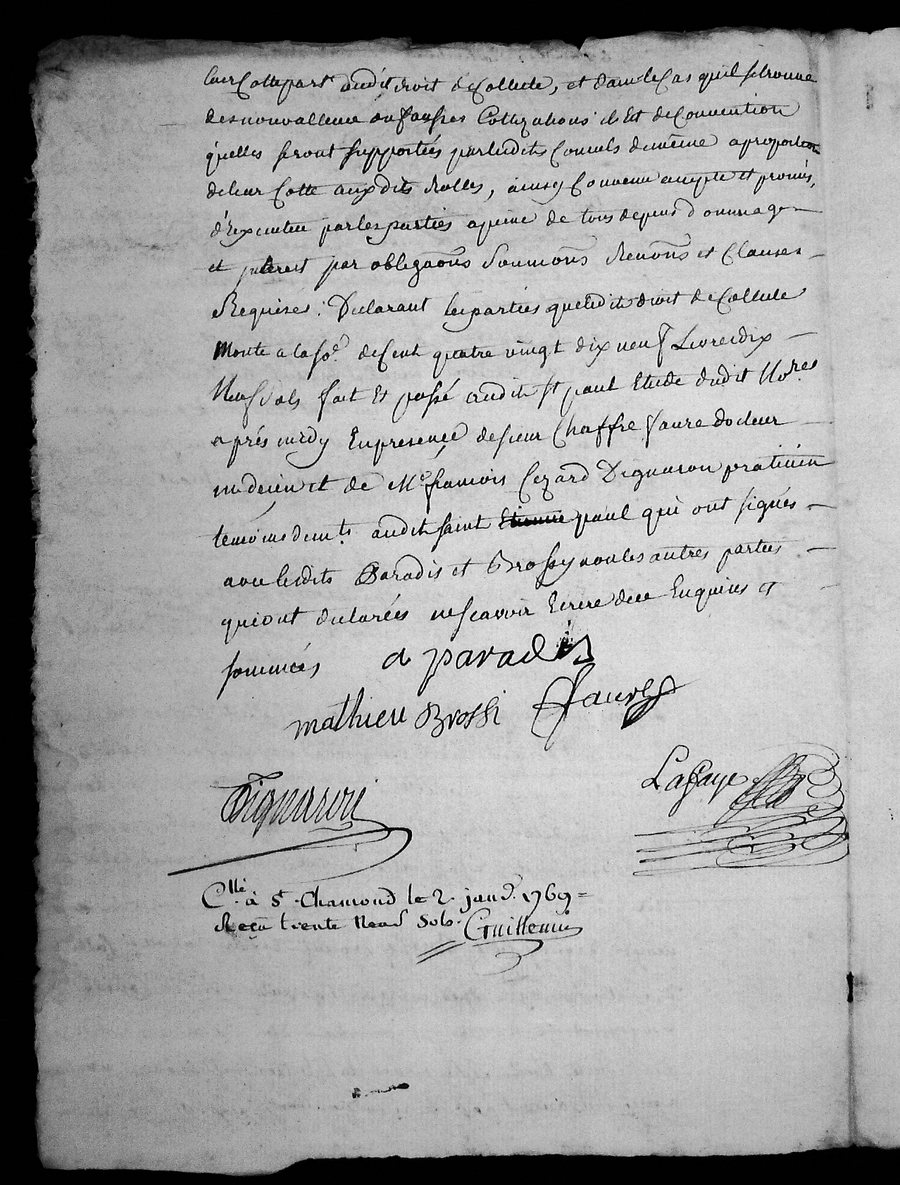 leur Cottepart audit droit de Collecte, et dans le Cas quil se trouve
des nonvalleurs ou fausses Cottizations il Est de Convention
quelles seront supportées par lesdits Consuls de même a proportion
de leur Cotte auxdits Rolles, ainsy Convenu accepté et promis,
d'Executer par les parties a peine de tous depens dommage
et interest par obligaons Soumions Renons et Clauses
Requises. Declarant les parties que ledit droit de Collecte
Monte a la so.e de Cent quatre vingt dix neuf Livres dix
Neuf sols fait Et passé audit st paul Etude dudit No.re
après midy En presence de sieur Chaffre faure docteur
medecin et de Me françois Cezard Vignaron praticien
temoins dem.ts audit saint Etienne paul qui ont signés
avec lesdits Paradis et Brossy non les autres parties
qui ont declarées ne scavoir Ecrire de ce Enquises et
sommées
a paradis
mathieu Brossi faure
Vignaron
Lafaye
C.llé à St. Chamond le 2. janv.r 1769
Reçu trente Neuf Sols. Guillemin